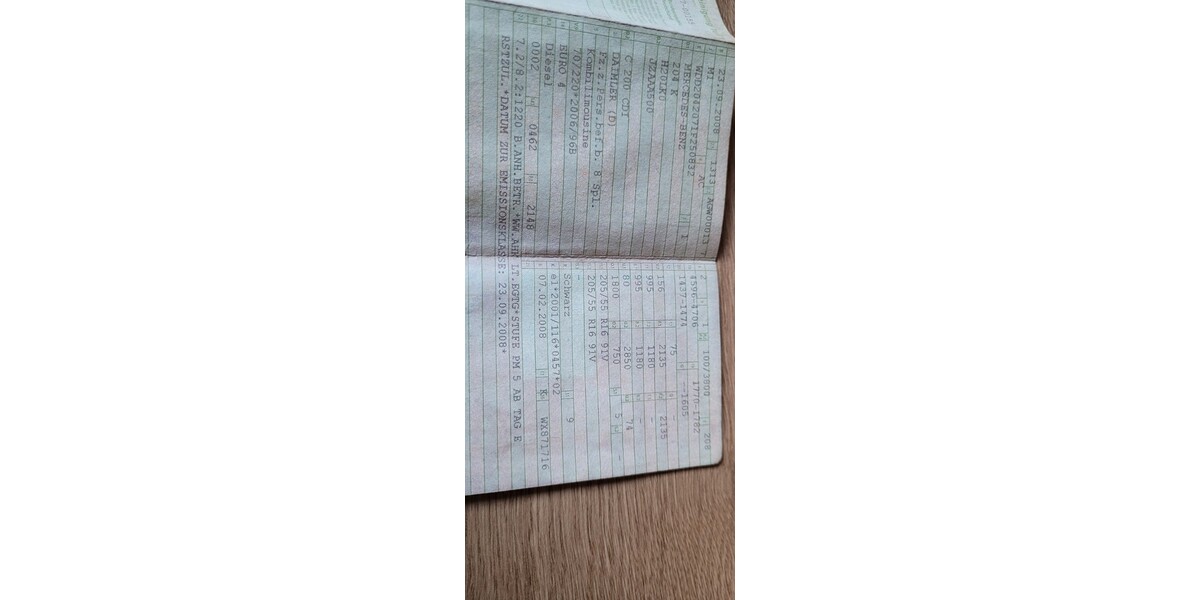 23.09.2008 1313 AGW00013 7
M1 AC
WDD2042071F250832 1
MERCEDES-BENZ
204 K
H20LK0
JZAAA500
C 200 CDI
DAIMLER (D)
Fz.z.Pers.bef.b. 8 Spl.
Kombilimousine
70/220*2006/96B
EURO 4
Diesel
0002 0462 2148
2 1 100/3800 268
4596-4706 1770-1782
1437-1474 -1605
75 -
156 2135 2135
995 1180 -
995 1180 -
80 2850 74
1800 750 5 -
205/55 R16 91V
205/55 R16 91V
-
Schwarz 9
e1*2001/116*0457*02
07.02.2008 K WX871716
7.2/8.2:1220 B.ANH.BETR.*WW.AHK LT.EGTG*STUFE PM 5 AB TAG E
RSTZUL.*DATUM ZUR EMISSIONSKLASSE: 23.09.2008*